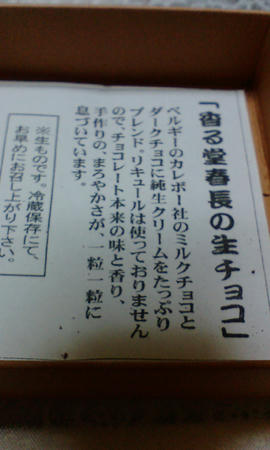 「香る堂春長の生チョコ」
ベルギーのカレボー社のミルクチョコと
ダークチョコに純生クリームをたっぷり
ブレンド。リキュールは使っておりません
ので、チョコレート本来の味と香り、
手作りの、まろやかさが、一粒一粒に
息づいています。
※生ものです。冷蔵保存にて、
お早めにお召し上がり下さい。